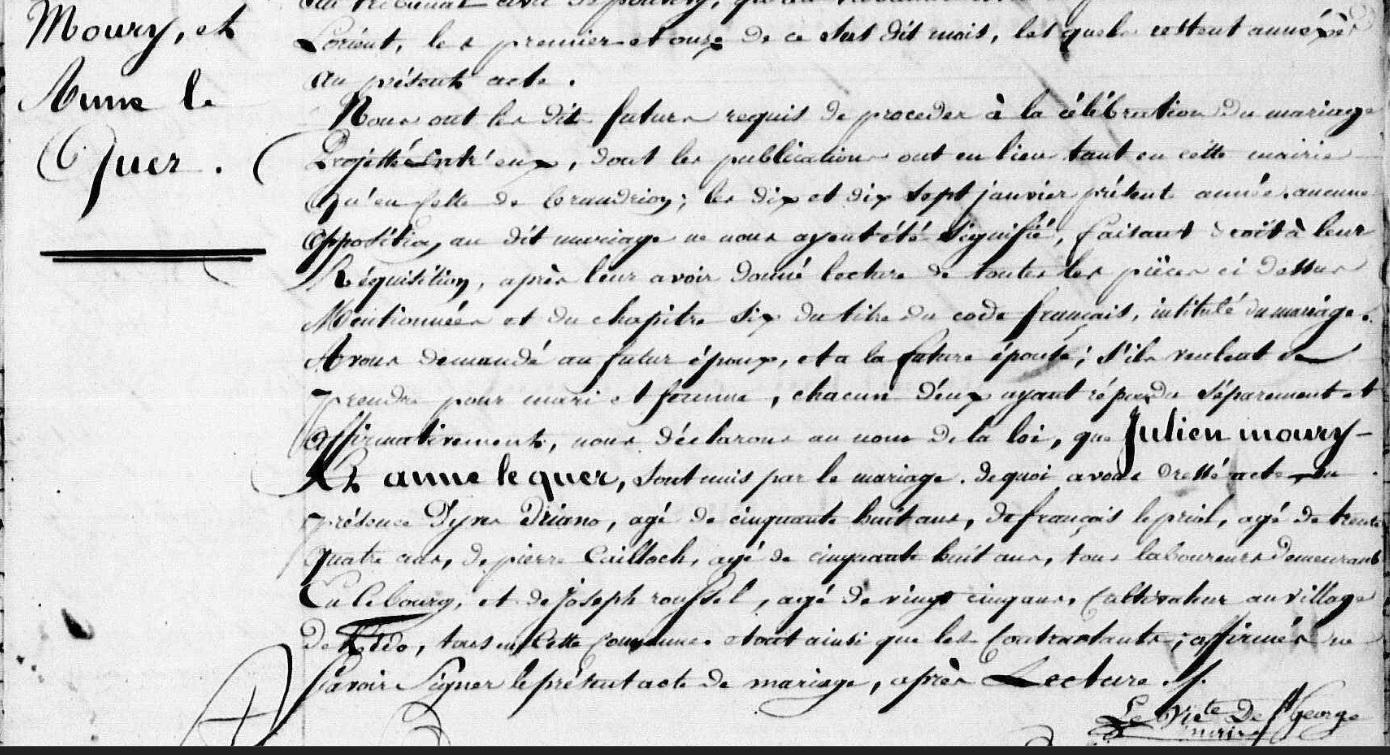 Moury, et
Anne le
Quer.
du tribunal civil de
Lorient, les premier et onze de ce sus dit mois, lesquels restent annéxés
au présent acte.
Nous ont les dit futurs requis de proceder à la célébration du mariage
Projetté entr'eux, dont les publications ont eu lieu tant en cette mairie
Qu'en celle de brandrion; les dix et dix sept janvier présent année, aucune
Opposition, au dit mariage ne nous ayent été signifié, faisant droit à leur
Réquisition, après leur avoir donné lecture de toutes les pièces ci dessus
Mentionnées et du chapitre six du titre du code français, intitulé du mariage.
Avons demandé au futur époux, et a la future épouse; s'ils veulent se
prendre pour mari et femme, chacun d'eux ayant répondu séparement et
affirmativement, nous déclarons au nom de la loi, que Julien moury
Et anne le quer, sont unis par le mariage. de quoi avons dressé acte en
présence d'yves Driano, agé de cinquante huit ans, de françois le priol, agé de trente
quatre ans, de pierre Cailloch, agé de cinquante huit ans, tous laboureurs demeurants
En le bourg, et de Joseph roussel, agé de vingt cinq ans, Cultivateur au village
de tous en cette Commune. etout ainsi que les Contractants; affirmés ne
Savoir Signer le présent acte de mariage, après Lecture ./.
Le Victe De St George
maire